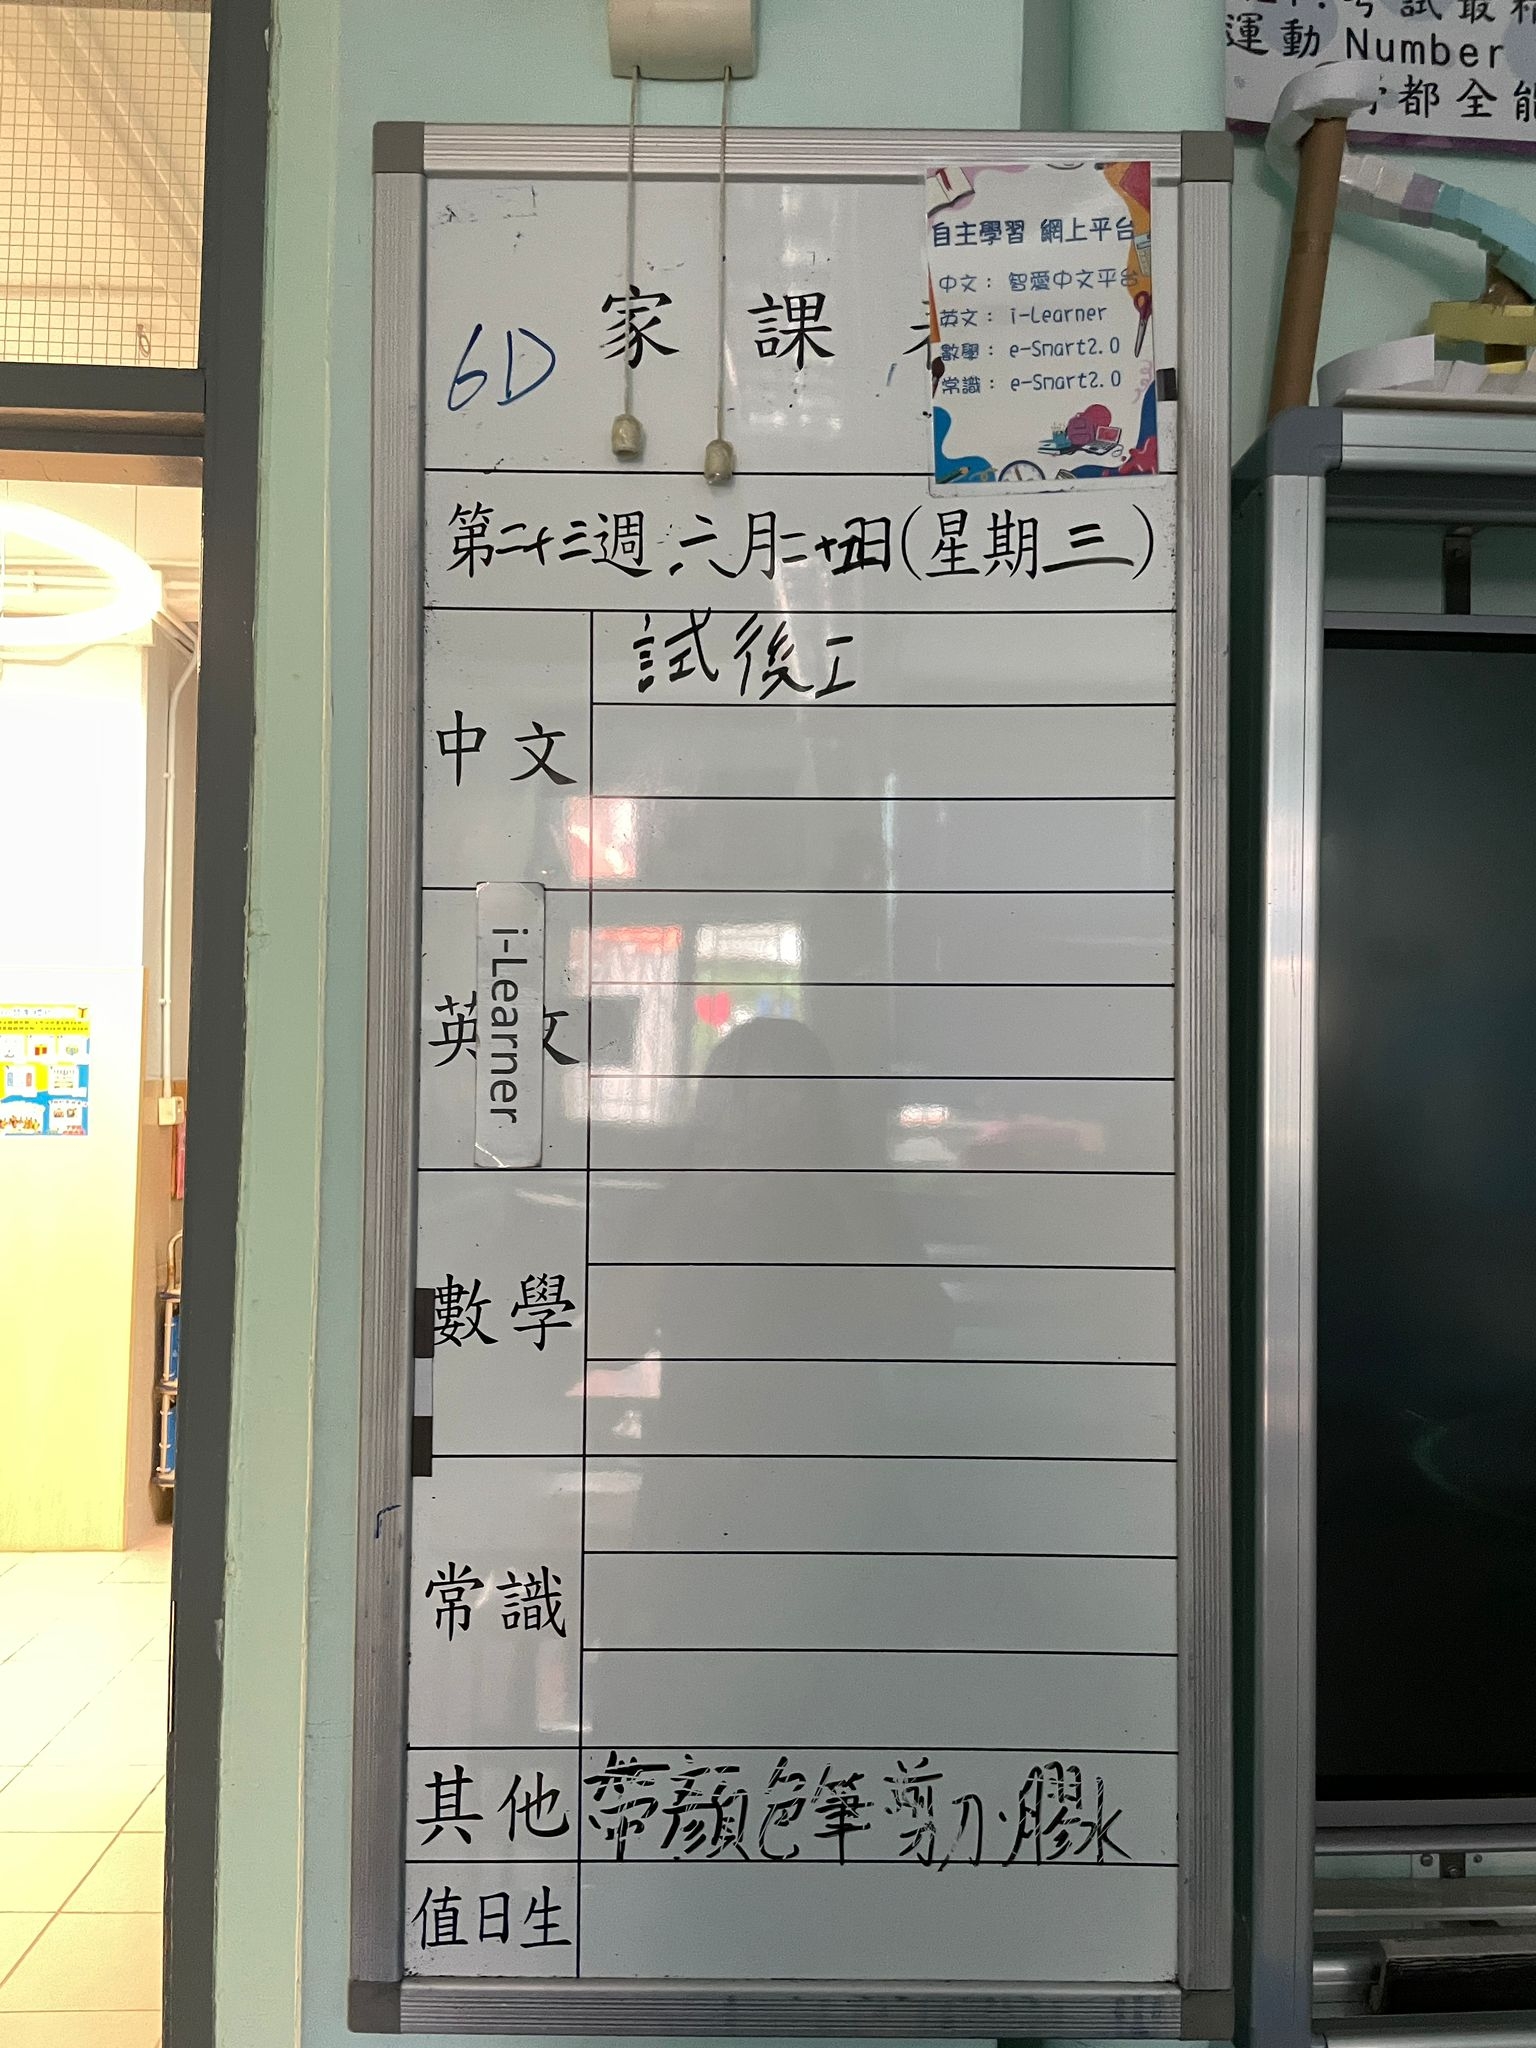 運動 Number
都全能
自主學習 網上平台
中文： 智愛中文平台
英文： i-Learner
數學： e-Smart2.0
常識： e-Smart2.0
家課
6D
第二十三週 六月二十五日(星期三)
試後工
中文
i-Learner
英文
數學
常識
其他 帶顏色筆 剪刀、膠水
值日生